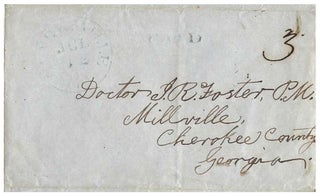 3
Doctor J. R. Foster, P.M.
Millville,
Cherokee County
Georgia.